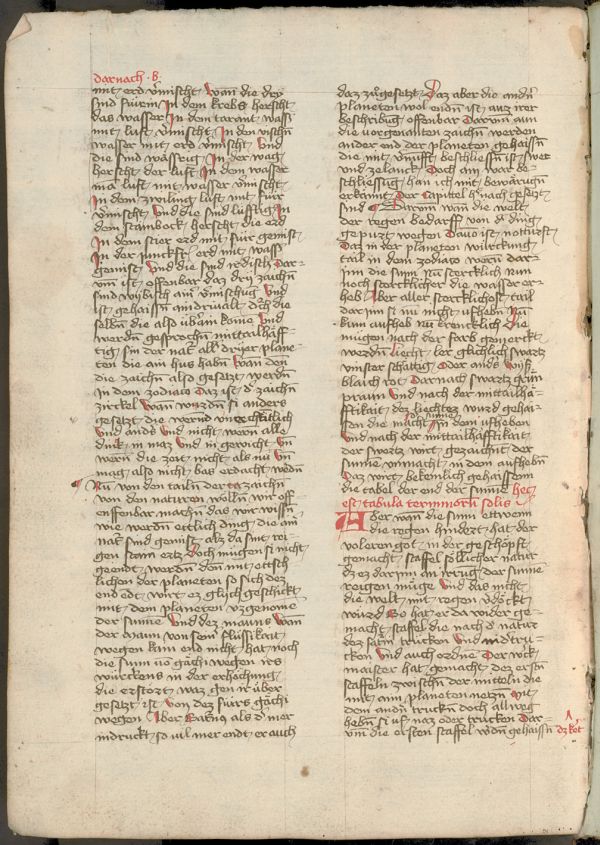 darnach · 8 ·
mit erd v̄mischt Wan̄ die dry
sind fúrein In dem krebs herscht
das wasser In dem tarant wass̄
mit luft v̄mischt In den vischn̄
wasser mit erd v̄mischt Und
die sind wässreig In der wag
herscht der luft In dem wasser
luft mit wasser v̄mischt
In dem zwilling luft mit fúr
v̄mischt Und die sind lúfftig In
dem stainbock herscht die erd
In dem stier erd mit fúr gemist
In der junckfr erd mit wass̄
gemist Und die sind irdisch Dar
vm̄ ist offenbar daz dry zaichn̄
sind Und
ist gehaissn̄ Durch die
selbn̄ die also Und
werdn̄ gesprochn̄ mittailhäff
tig sin der nat̄ all dryer plane
ten die ain hus habn̄ Wan̄ den̄
die zaichn̄ also gesetzt werdn̄
in dem zodiaco Daz ist d zaichn̄
zirckel Wan̄ wurdn̄ si anders
gesetzt die wernd
Und nicht wern̄ alle
dink in maz Und in gewicht Vn̄
wern̄ die zeit nicht als nu vn̄
mag also nicht bas erdacht werdn̄
Nu von den tailn der zaichn̄
von den naturen wölln̄ wir off
offenbar machn̄ das wir wissn̄
wie werdn̄ ettlich ding die ain
nat̄ sind genust alz da sint rei
gen stain ertz Doch múgen si nicht
geendt werdn̄ den̄ mit ettsch
lichen der planeten so sich dez
end edt wirt ez glych geschickt
mit dem planeten usgenome
der sunne Und dez mauns Wan̄
der maun von sein flússikait
wegen kain end nicht hat noch
die sunn uō gächi wegen irs
wúrckens in der erhöchung
die erstözt waz gen ir úber
gesetzt ist Von dez fúrs gächi
wegen Aber Satn̄us als d mer
indruckt so vil mer endt er auch
daz zu gesetzt Daz aber die andn̄
planeten wol endn̄ ist auz irer
beschribūg offenbar Darum̄ nun
die vorgenanten zaichn̄ werden
ander end der planeten gehaissn̄
die mit v̄nufft beschliessn̄ ist swer
und ze lanck Doch ain war be
schliessūg han ich mit bewärūgn̄
erkānt Der capitel hie nach gesetzt
sind Darum̄ wan̄ die welt
der regen bedarff von d ding
gepurt wegen Davo ist notturft
Daz in der planeten wúrckung
tail in dem zodiaco wern̄ dar
inn die sunn nu̇ sterklich Nun
noch stercklicher die wasser er
heb Aber aller stercklichost tail
dar inn si nu nicht ufhebn̄ Nu̇
kum aufheb nu̇ krencklich Die
mugen nach der farb gemerckt
werdn̄ liecht ler glichlich swartz
vinster schattig Oder ands wiss
blaich rot Darnach swartz grūn
praun Und nach der mittailhä
fftikait dez liechtez wurd gehai
ssen die macht der sunne In dem ufheben
und nach der mittailhafftikait
der swertz wirt gezaichnt der
sunne vnmacht in dem aufhebn̄
Daz wirt bekenlich gehaissenn
die tabel der end der sunne hec
est tabula terminoru̅ solis
Aber wan̄ die sunn ettwenn
die regen hindert hat der
volrengot in der geschöpft
gemacht staffel söllicher natur
dz ez darinn an irrūg der sunne
reigen múge Und das nicht
die welt mit regen v̄dockt
wúrd So hat er da wider ge
macht staffel die nach d natur
dez satn̄n trucken Und indtru
cken Und auch ordne Der wik
maister hat gemacht dez ersn̄
staffeln zwischn̄ der mitteln die
mit ainn planeten netzn̄ Mit
dem andn̄ truckn̄ doch all weg
hebn̄ si uf naz oder trucken Dar
vm̄ die ersten staffel werdn̄ gehaissn̄ dz kot